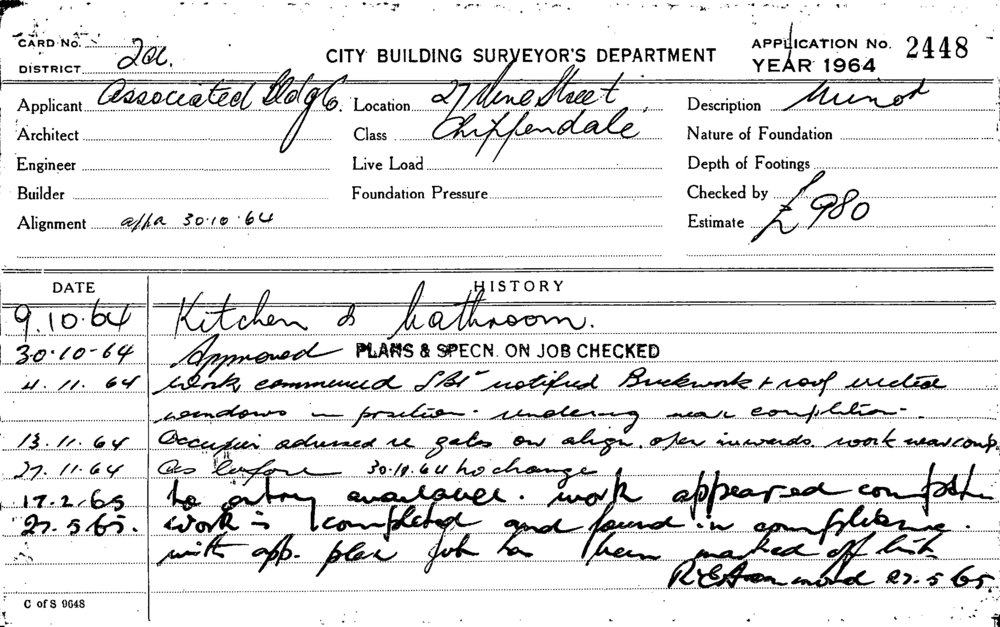 CARD No.
CITY BUILDING SURVEYOR'S DEPARTMENT
APPLICATION No. 2448
DISTRICT 2a.
YEAR 1964
Applicant Associated Bldg Co. Location 27 Street Description Minor
Architect Class Chippendale Nature of Foundation
Engineer Live Load Depth of Footings
Builder Foundation Pressure Checked by
Alignment appn 30.10.64 Estimate £980
DATE HISTORY
9.10.64 Kitchen & bathroom.
30-10-64 Approved PLANS & SPECN. ON JOB CHECKED
4.11.64 Work commenced notified Brickwork + roof erected
windows in position - rendering near completion.
13.11.64 Occupier advised re gates on align. open inwards. work near comp.
27.11.64 As before 30.10.64 no change
17.2.65 No entry available. work appeared complete
27.5.65. Work is completed and found in compliance
with app. plan job has been marked off list
27.5.65.
C of S 9648